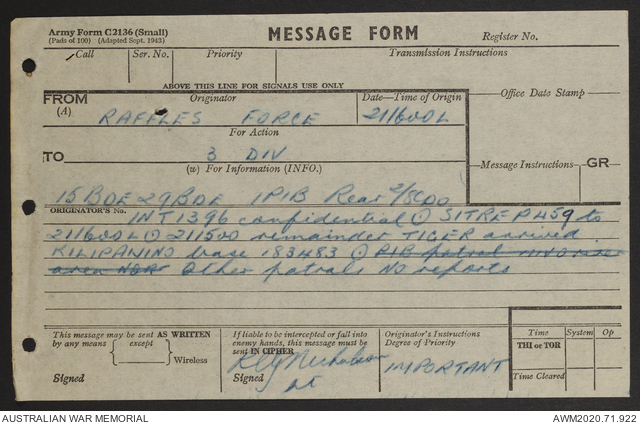 Army Form C2136 (Small)
(Pads of 100) (Adapted Sept. 1943)
MESSAGE FORM
Register No.
Call Ser. No. Priority Transmission Instructions
ABOVE THIS LINE FOR SIGNALS USE ONLY
FROM Originator Date—Time of Origin Office Date Stamp
(A) RAFFLES FORCE 211600L
For Action
TO 3 DIV
(w) For Information (INFO.) Message Instructions GR
15 BDE 29 BDE 1PIB Rear 2/8CDO
ORIGINATOR'S No.
INT1396 confidential SITREP 459 to
211600L 211500 remainder TIGER arrived
KILIPANINO base 183483 PIB patrol
area Other patrols NO reports
This message may be sent AS WRITTEN
by any means except
Wireless
Signed
If liable to be intercepted or fall into
enemy hands, this message must be
sent IN CIPHER
Nicholson
Signed
Lt
Originator's Instructions
Degree of Priority
IMPORTANT
Time System Op
THI or TOR
Time Cleared
AUSTRALIAN WAR MEMORIAL AWM2020.71.922